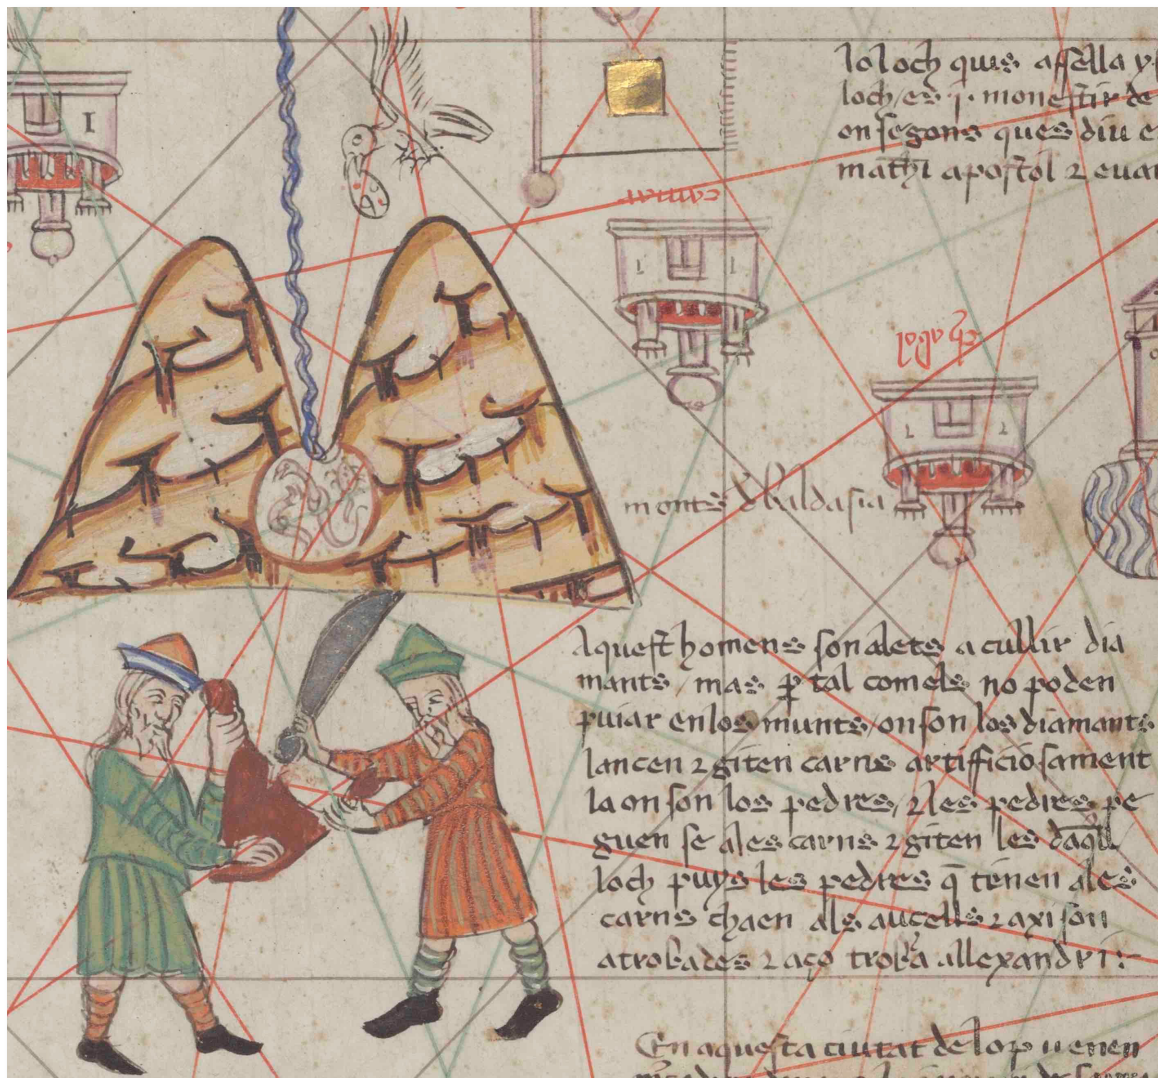 lo loch qui's assella ys
loch es .j. monestir de
on segons ques diu e
mathi apostol ⁊ euan
monts d baldasia
Aquest homens son alets a cullir dia
mants / mas p tal com els no poden
puiar en los munts / on son los diamants
lancen ⁊ giten carns artifficiosament
la on son los pedres / ⁊ les pedres pe
guen se a les carns ⁊ giten les daql
loch puys les pedres q̄ tenen a les
carns chaen als aucells ⁊ axi son
atrobades ⁊ aço troba allexandri :-
En aquesta ciutat de lop uenen